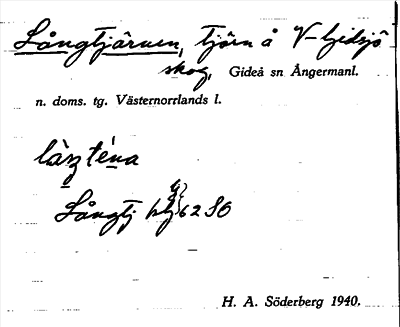 Långtjärnen, tjärn å V-Gideå
skog, Gideå sn Ångermanl.
n. doms. tg. Västernorrlands l.
Långtj
6280
H. A. Söderberg 1940.